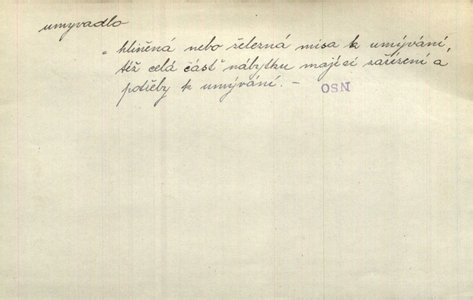 umyvadlo
„hliněná nebo železná mísa k umývání,
též celá část nábytku mající zařízení a
potřeby k umývání. –
OSN